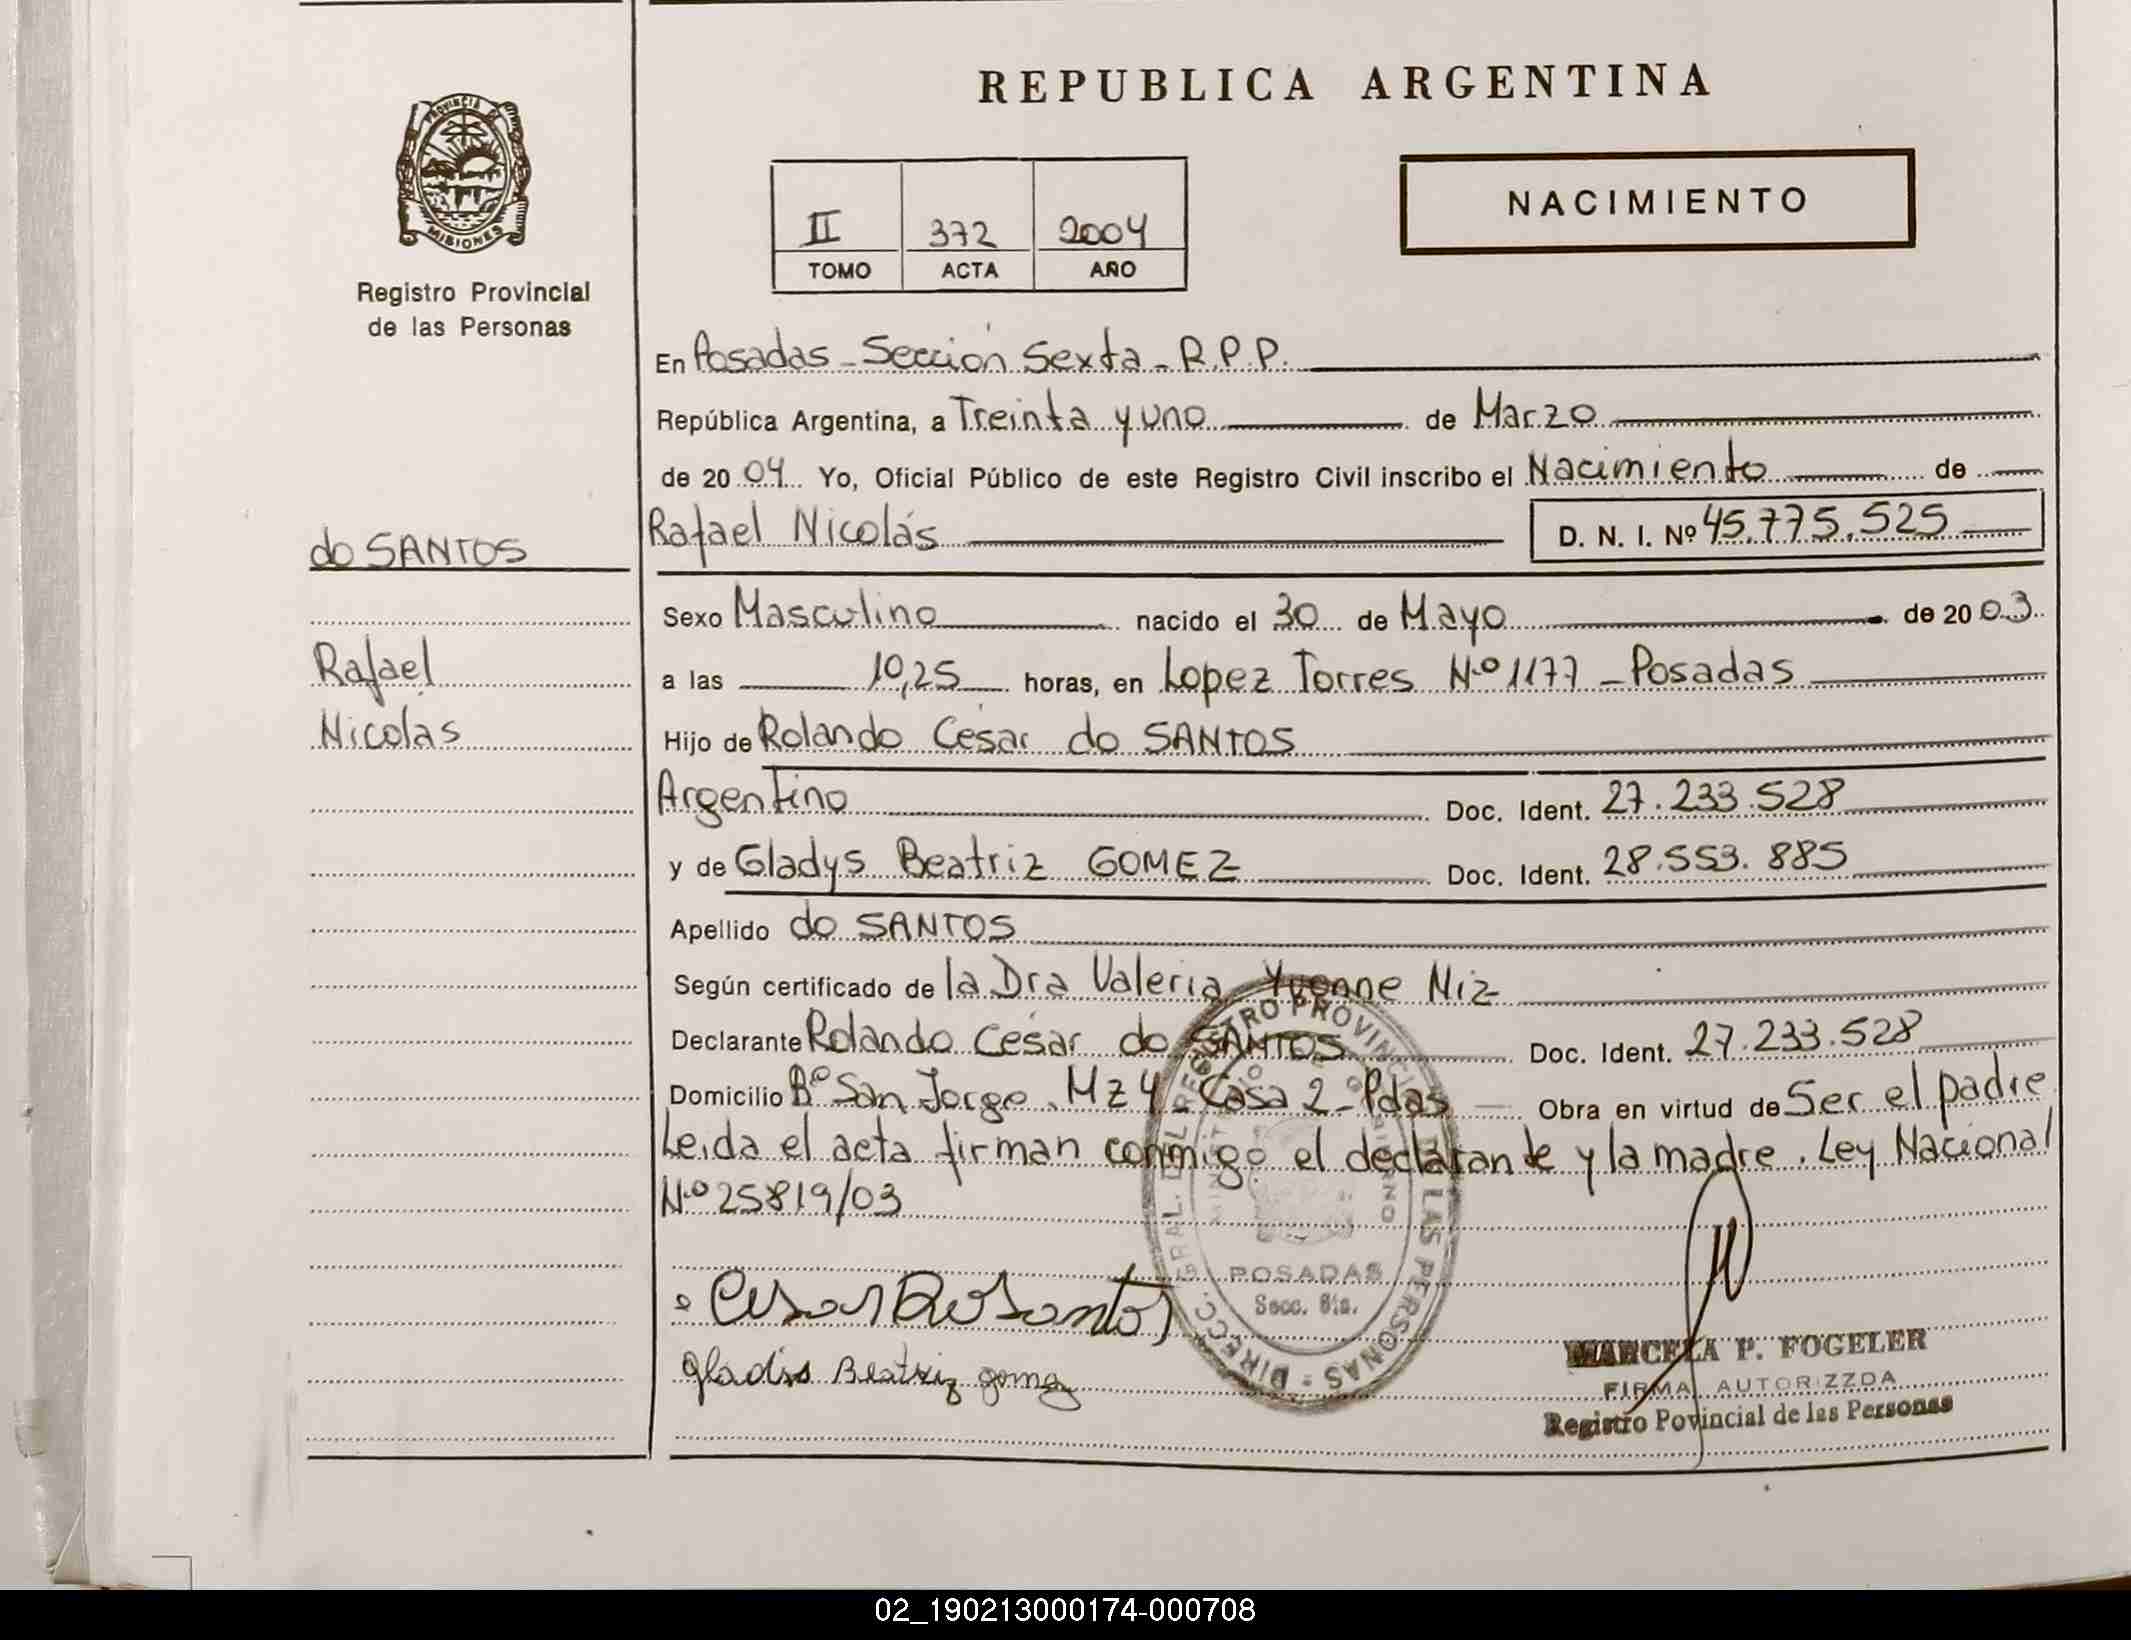 REPUBLICA ARGENTINA
PROVINCIA DE MISIONES
Registro Provincial
de las Personas
II 372 2004
TOMO ACTA AÑO
NACIMIENTO
En Posadas - Sección Sexta - R.P.P.
República Argentina, a Treinta y uno de Marzo
de 20 04 Yo, Oficial Público de este Registro Civil inscribo el Nacimiento de
do SANTOS
Rafael
Nicolas
Rafael Nicolás D. N. I. Nº 45.775.525
Sexo Masculino nacido el 30 de Mayo de 20 03
a las 10,25 horas, en Lopez Torres N.º 1177 - Posadas
Hijo de Rolando César do SANTOS
Argentino Doc. Ident. 27.233.528
y de Gladys Beatriz GOMEZ Doc. Ident. 28.553.885
Apellido do SANTOS
Según certificado de la Dra Valeria Yvonne Niz
Declarante Rolando César do SANTOS Doc. Ident. 27.233.528
Domicilio Bº San Jorge. Mz 4 - Casa 2 - Pdas Obra en virtud de Ser el padre
Leida el acta firman conmigo el declarante y la madre. Ley Nacional
N.º 25819/03
Cesar Do Santos
gladis Beatriz gomez
DIRECC. GRAL. DEL REGISTRO PROVINCIAL DE LAS PERSONAS
POSADAS
Secc. 6ta.
MARCELA P. FOGELER
FIRMA AUTORIZZDA
Registro Povincial de las Personas
02_190213000174-000708